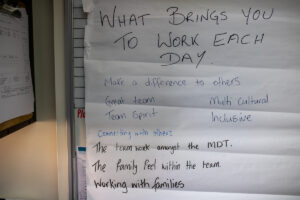 WHAT BRINGS YOU
TO WORK EACH
DAY.
Make a difference to others
Great team
Multi Cultural
Team Spirit
Inclusive
Connecting with others
The team work amongst the MDT.
The family feel within the team.
Working with families